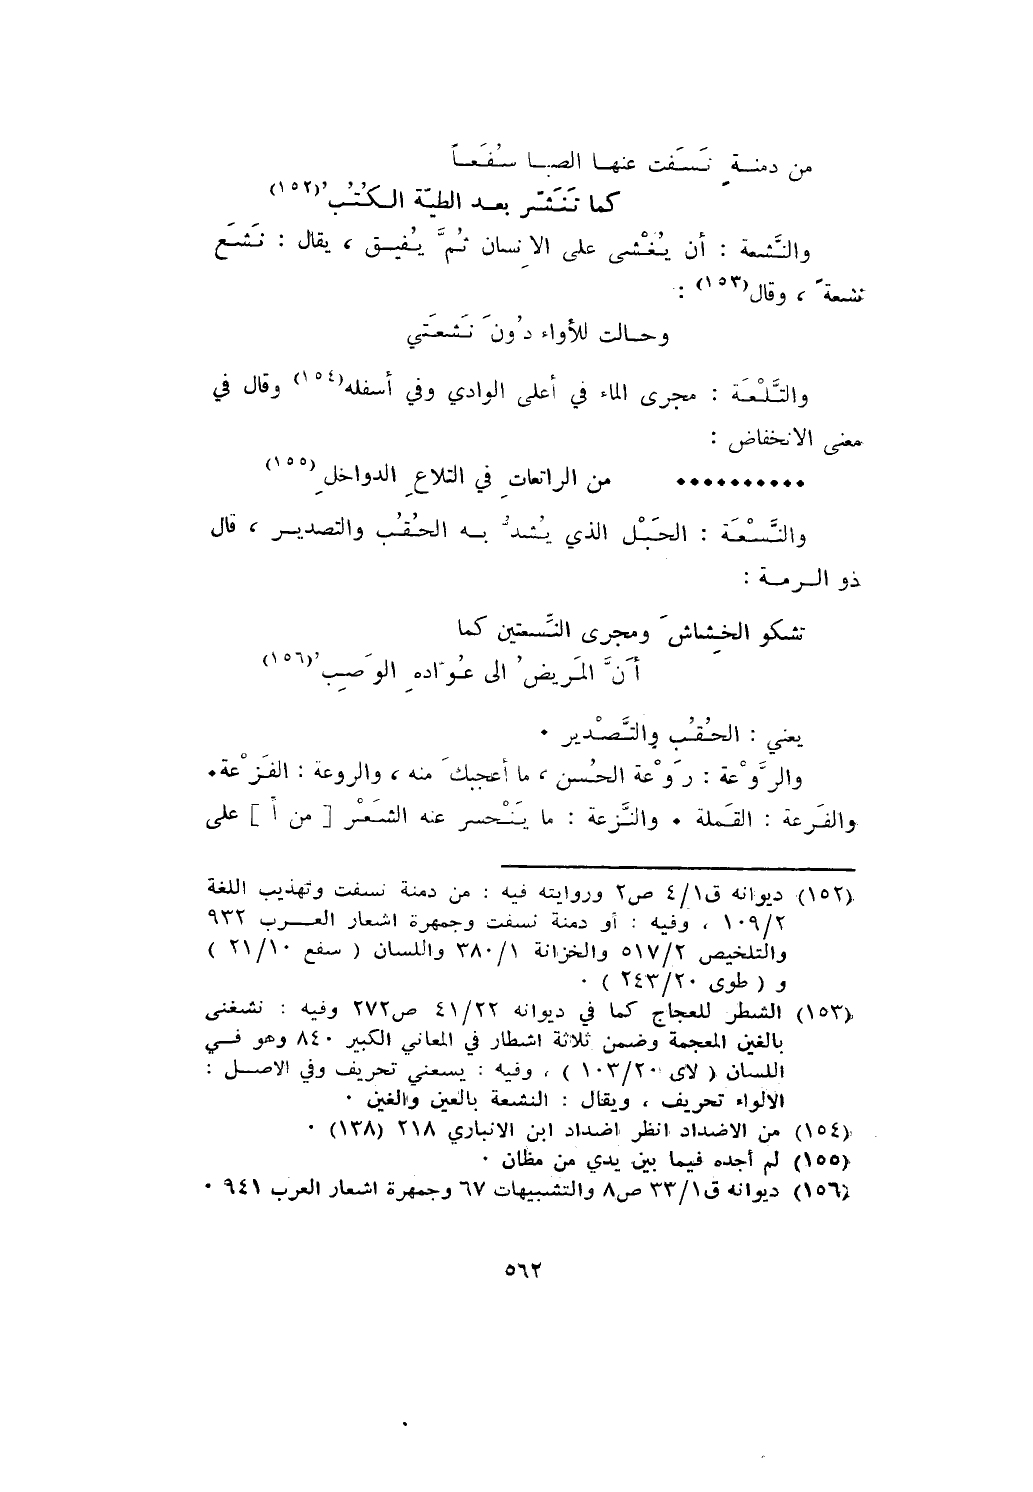 من دمنةٍ نَسَفَت عنهـا الصبـا سُفَعـاً
كما تَنَشّر بعـد الطيّة الكُتُبُ(١٥٢)
والنَّشعة : أن يُغْشى على الإنسان ثُمَّ يُفيـق ، يقال : نَشَع
نشعةً ، وقال(١٥٣) :
وحـالت للأواء دُونَ نَشعَتي
والتَّلْعَة : مجرى الماء في أعلى الوادي وفي أسفله(١٥٤) وقال في
معنى الانخفاض :
•••••••••• من الراتعاتِ في التلاعِ الدواخلِ(١٥٥)
والنَّسْعَة : الحَبْل الذي يُشدُّ بـه الحُقُب والتصديـر ، قال
ذو الرمـة :
تشكو الخِشاشَ ومجرى النَّسعتين كما
أَنَّ المَريضُ الى عُوّادهِ الوَصِبُ(١٥٦)
يعني : الحُقُب والتَّصْدير •
والرَّوْعة : رَوْعة الحُسن ، ما أعجبكَ منه ، والروعة : الفَزْعة•
والفَرعة : القَملة • والنَّزعة : ما يَنْحسر عنه الشَعْر [ من أ ] على
(١٥٢) ديوانه ق٤/١ ص٢ وروايته فيه : من دمنة نسفت وتهذيب اللغة
١٠٩/٢ ، وفيه : أو دمنة نسفت وجمهرة اشعار العـرب ٩٣٢
والتلخيص ٥١٧/٢ والخزانة ٣٨٠/١ واللسان ( سفع ٢١/١٠ )
و ( طوى ٢٤٣/٢٠ ) •
(١٥٣) الشطر للعجاج كما في ديوانه ٤١/٢٢ ص٢٧٢ وفيه : نشغنى
بالغين المعجمة وضمن ثلاثة اشطار في المعاني الكبير ٨٤٠ وهو فـي
اللسان ( لاى ١٠٣/٢٠ ) ، وفيه : يسعني تحريف وفي الاصـل :
الالواء تحريف ، ويقال : النشعة بالعين والغين •
(١٥٤) من الاضداد انظر اضداد ابن الانباري ٢١٨ (١٣٨) •
(١٥٥) لم أجده فيما بين يدي من مظان •
(١٥٦) ديوانه ق٣٣/١ ص٨ والتشبيهات ٦٧ وجمهرة اشعار العرب ٩٤١ •
٥٦٢